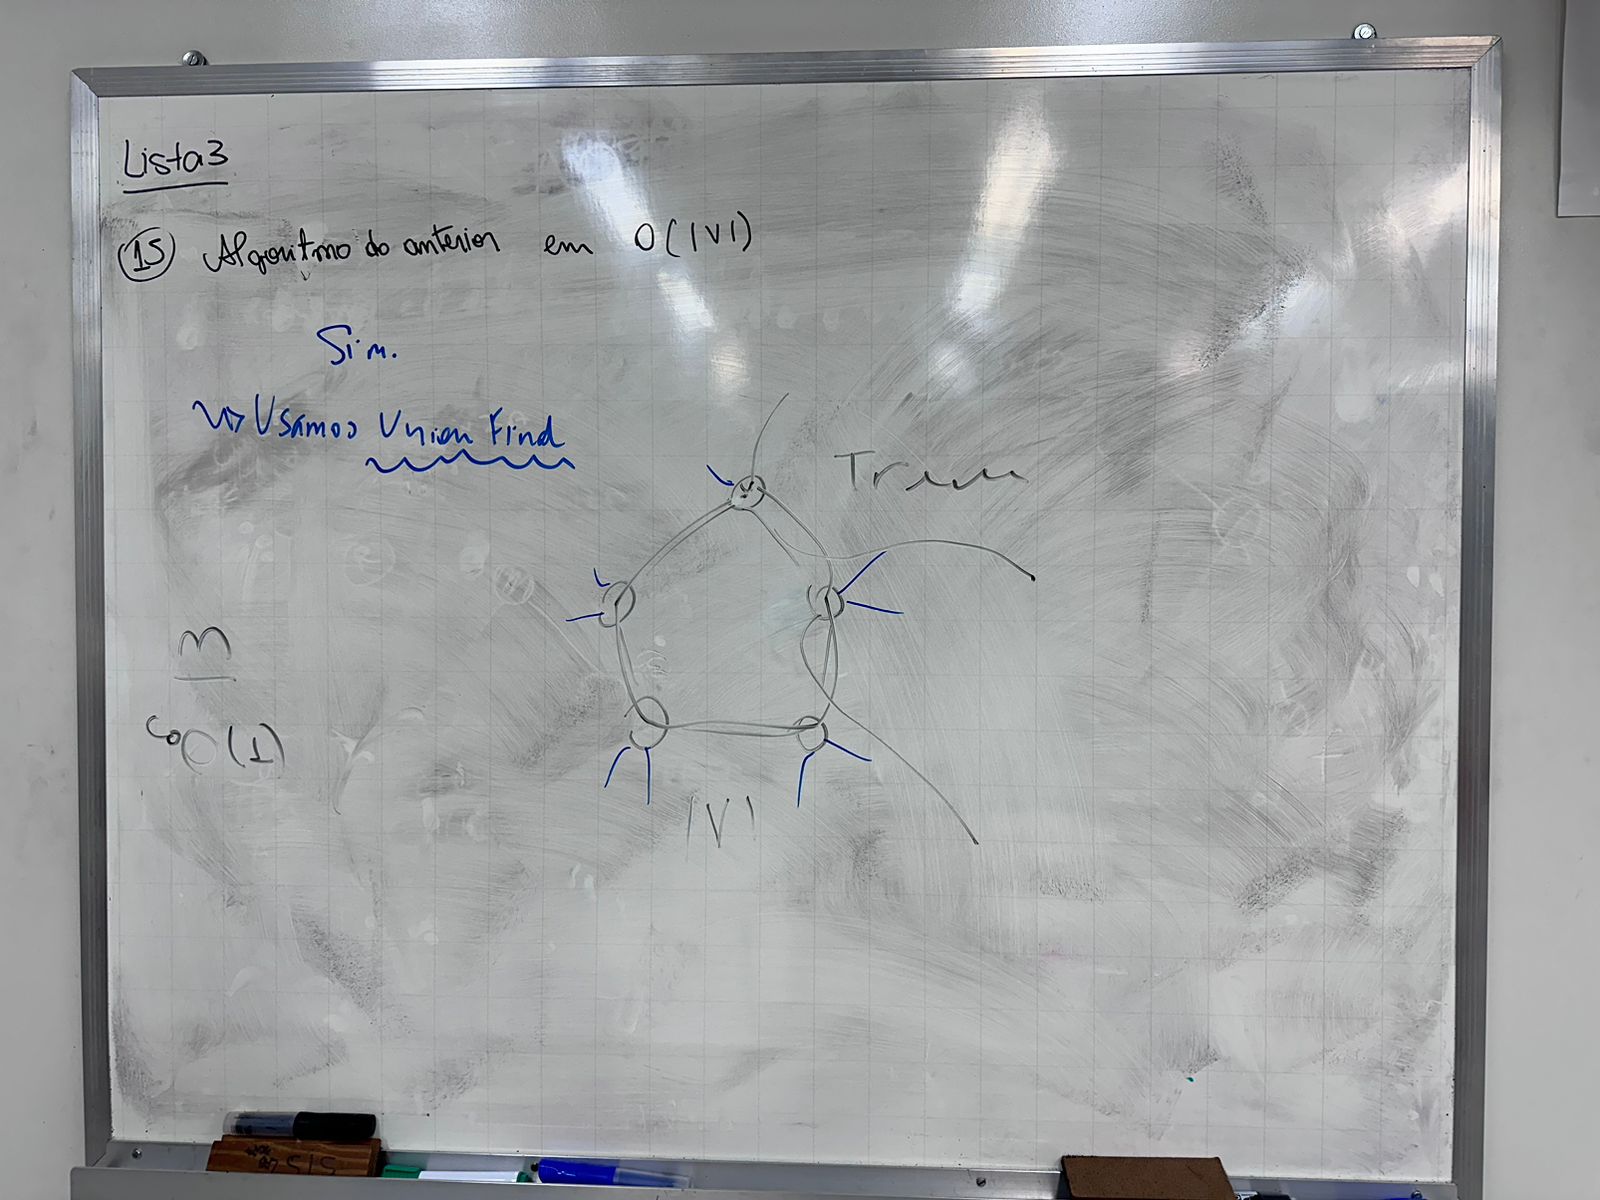 Lista 3
15 Algoritmo do anterior em O(|V|)
Sim.
Usamos Union Find
|V|